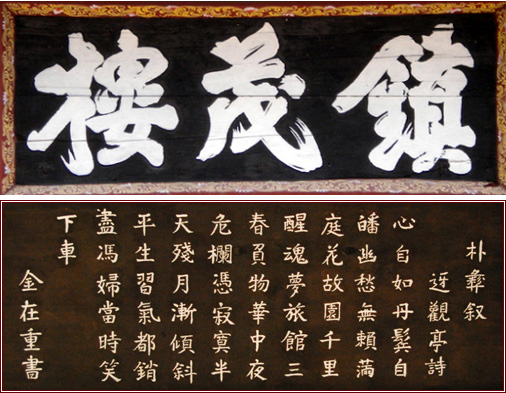 鎮茂樓
朴彝叙
迓觀亭詩
心自如丹鬂自
皤幽愁無賴滿
庭花故園千里
醒魂夢旅館三
春負物華中夜
危欄憑寂寞半
天殘月漸傾斜
平生習氣都銷
盡馮婦當時笑
下車
金在重書